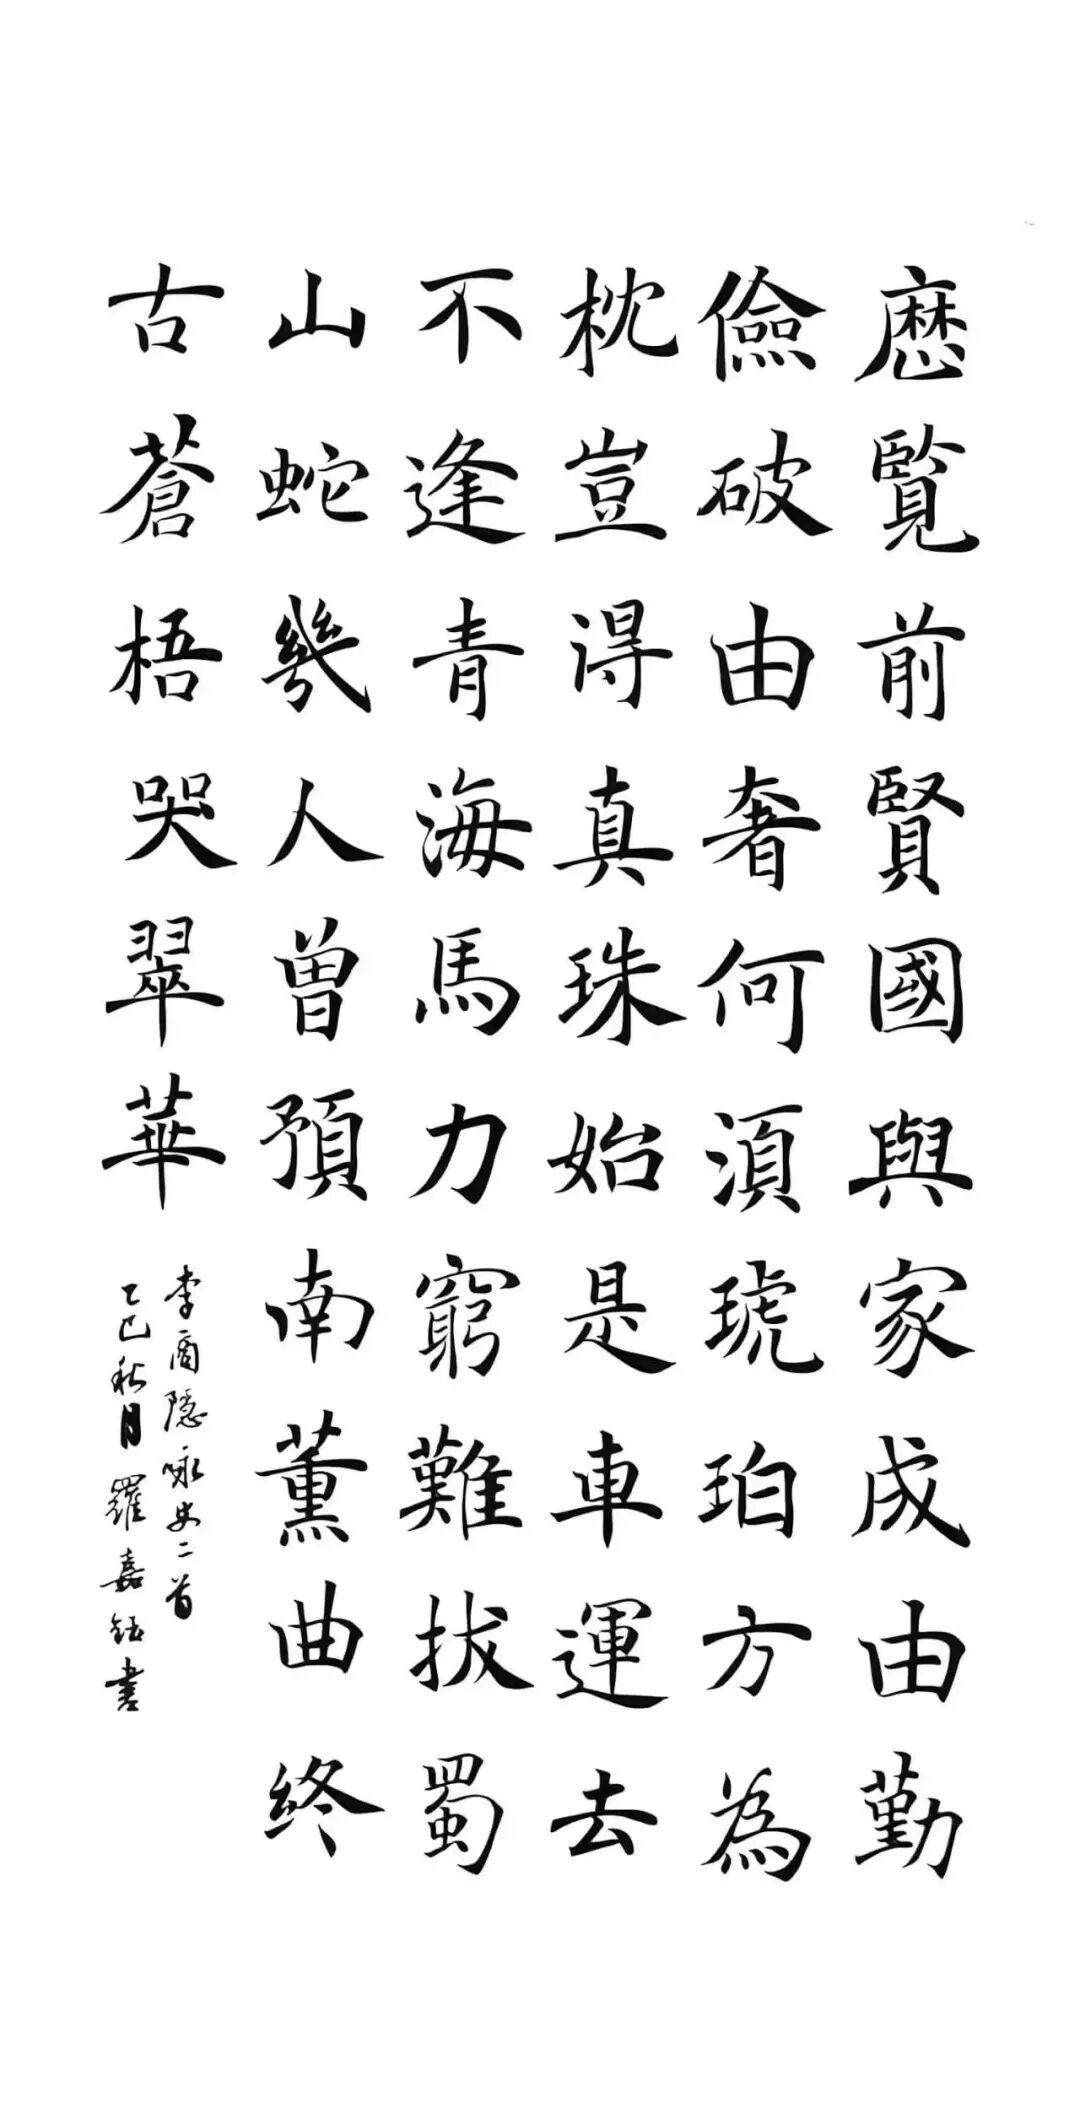 歷覽前賢國與家成由勤
儉破由奢何須琥珀方為
枕豈得真珠始是車運去
不逢青海馬力窮難拔蜀
山蛇幾人曾預南薰曲終
古蒼梧哭翠華
李商隱咏史二首
乙巳秋月羅嘉鈺書